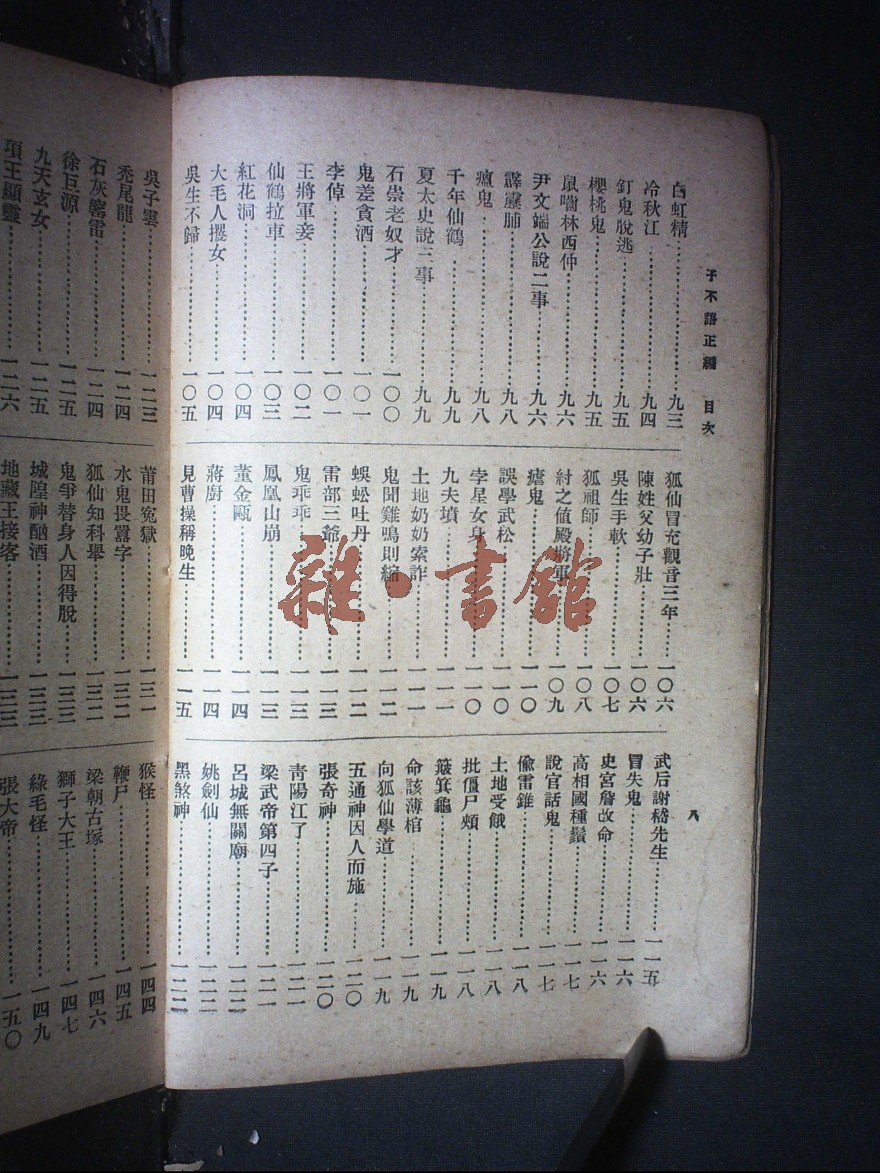 子不語正編　目次
八
白虹精………九三
冷秋江………九四
釘鬼脫逃………九五
櫻桃鬼………九五
鼠嚙林西仲………九六
尹文端公說二事………九六
霹靂脯………九八
瘟鬼………九八
千年仙鶴………九九
夏太史說三事………九九
石崇老奴才………一〇〇
鬼差貪酒………一〇一
李倬………一〇一
王將軍妾………一〇二
仙鶴拉車………一〇三
紅花洞………一〇四
大毛人攫女………一〇四
吳生不歸………一〇五
狐仙冒充觀音三年………一〇六
陳姓父幼子壯………一〇六
吳生手軟………一〇七
狐祖師………一〇八
紂之值殿將軍………一〇九
瘧鬼………一一〇
誤學武松………一一〇
孛星女身………一一〇
九夫墳………一一一
土地奶奶索詐………一一一
鬼聞雞鳴則縮………一一二
蜈蚣吐丹………一一二
雷部三爺………一一三
鬼乖乖………一一三
鳳凰山崩………一一三
董金甌………一一四
蔣廚………一一四
見曹操稱晚生………一一五
武后謝嵇先生………一一五
冒失鬼………一一六
史宮詹改命………一一六
高相國種鬚………一一七
說官話鬼………一一七
偷雷錐………一一八
土地受餓………一一八
批僵尸頰………一一八
簸箕龜………一一九
命該薄棺………一一九
向狐仙學道………一一九
五通神因人而施………一二〇
張奇神………一二〇
青陽江了………一二一
梁武帝第四子………一二一
呂城無關廟………一二二
姚劍仙………一二二
黑煞神………一二二
吳子雲………一二三
禿尾龍………一二四
石灰窰雷………一二四
徐巨源………一二五
九天玄女………一二五
項王顯靈………一二六
莆田冤獄………一三一
水鬼畏囂字………一三二
狐仙知科舉………一三二
鬼爭替身人因得脫………一三二
城隍神酗酒………一三三
地藏王接客………一三三
猴怪………一四四
鞭尸………一四五
梁朝古塚………一四六
獅子大王………一四七
綠毛怪………一四九
張大帝………一五〇
雜·書館